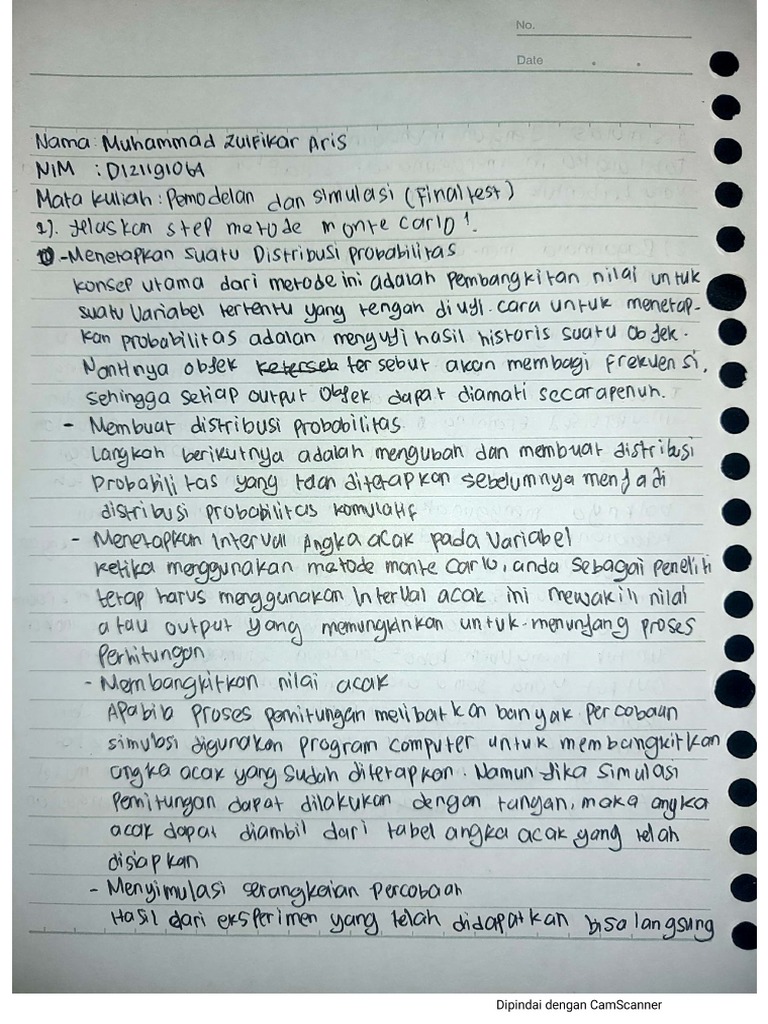 No.
Date
Nama : Muhammad Zulfikar Aris
NIM : D121191064
Mata kuliah : Pemodelan dan simulasi (Final test)
2). Jelaskan step metode monte carlo !
- Menetapkan suatu Distribusi probabilitas
konsep utama dari metode ini adalah pembangkitan nilai untuk
suatu variabel tertentu yang tengah diuji. cara untuk menetap-
kan probabilitas adalah menguji hasil historis suatu objek.
Nantinya objek tersebut akan membagi frekuensi,
sehingga setiap output objek dapat diamati secara penuh.
- Membuat distribusi probabilitas
Langkah berikutnya adalah mengubah dan membuat distribusi
probabilitas yang telah diterapkan sebelumnya menjadi
distribusi probabilitas komulatif
- Menetapkan interval Angka acak pada variabel
ketika menggunakan metode monte carlo, anda sebagai peneliti
tetap harus menggunakan interval acak ini mewakili nilai
atau output yang memungkinkan untuk menunjang proses
perhitungan
- Membangkitkan nilai acak
Apabila proses perhitungan melibatkan banyak percobaan
simulasi digunakan program computer untuk membangkitkan
angka acak yang sudah diterapkan. Namun jika simulasi
perhitungan dapat dilakukan dengan tangan, maka angka
acak dapat diambil dari tabel angka acak yang telah
disiapkan
- Menyimulasi serangkaian percobaan
Hasil dari eksperimen yang telah didapatkan bisa langsung
Dipindai dengan CamScanner